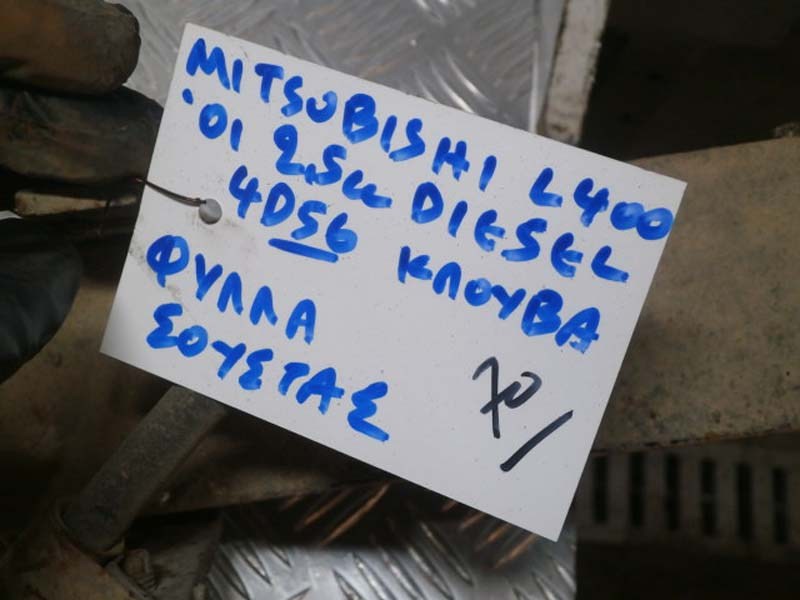 MITSUBISHI L400
'01 2,5cc DIESEL
4D56 ΚΛΟΥΒΑ
ΦΥΛΛΑ
ΣΟΥΣΤΑΣ
70/